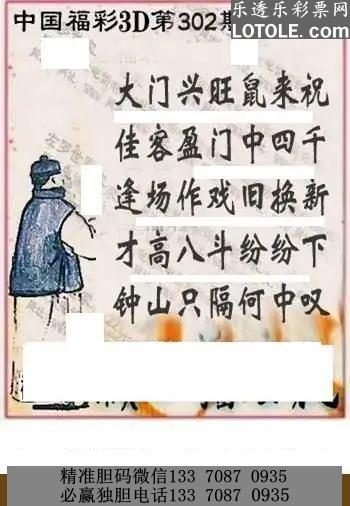 乐透乐彩票网
LOTOLE.COM
中国福彩3D第302期
大门兴旺鼠来祝
佳客盈门中四千
逢场作戏旧换新
才高八斗纷纷下
钟山只隔何中叹
精准胆码微信133 7087 0935
必赢独胆电话133 7087 0935